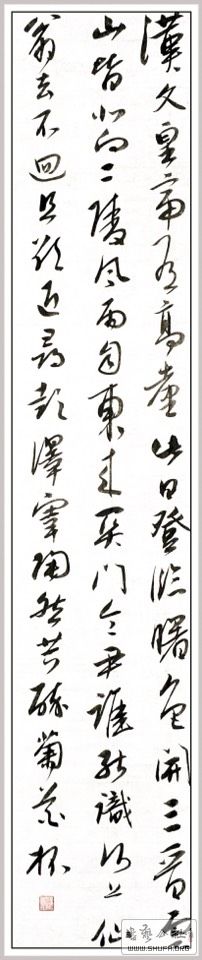 漢文皇帝有高臺此日登臨曙色開三晉雲
山皆北向二陵風雨自東來關門令尹誰能識河上仙
翁去不迴且欲近尋彭澤宰陶然共醉菊花杯
WWW.SHUFA.ORG